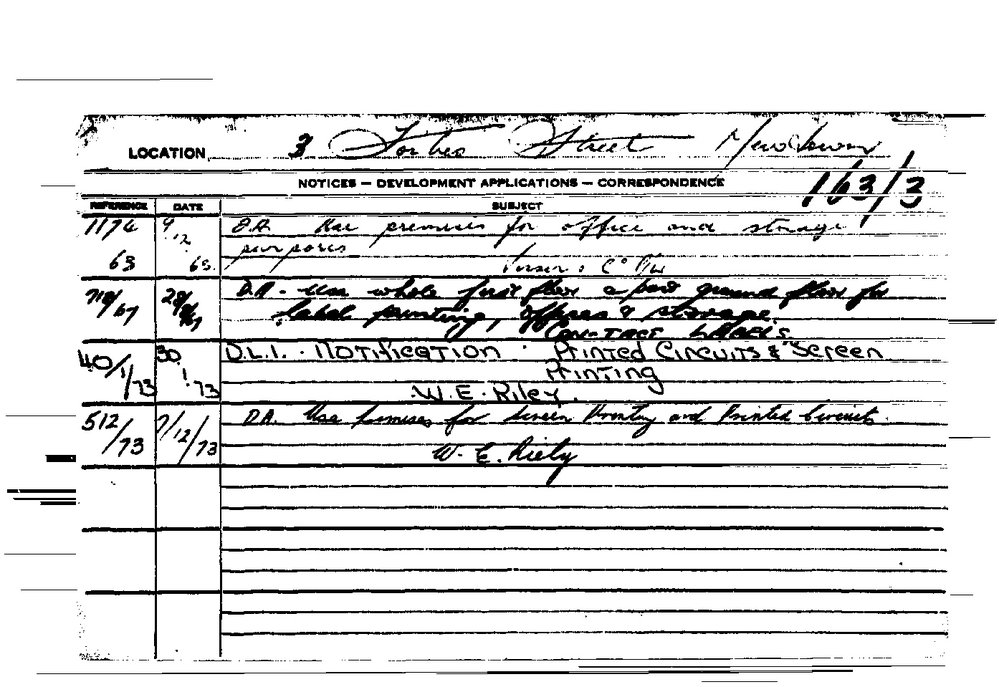 LOCATION 3 Forbes Street Newtown
NOTICES — DEVELOPMENT APPLICATIONS — CORRESPONDENCE 163/3
REFERENCE DATE SUBJECT
1174 9 D.A. Use premises for office and storage
12 purposes
63 63. & Co P/L
710/67 28/8/67 D.A - Use whole first floor & part ground floor for
label printing, offices & storage.
CONTACT LABELS
40/1/73 30 1 73 D.L.I. - Notification - Printed Circuits & Screen
Printing
W.E. Riley.
512/73 7/12/73 D.A. Use premises for Screen Printing and Printed Circuits.
W. E. Riely